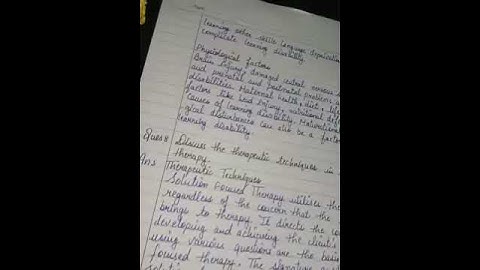 learning other skills language deprivation
complicate learning disability.
Physiological factors
Brain injury, damaged central nervous
and prenatal and postnatal problems
disabilities. Maternal health, diet,
factors like head injury, nutritional
causes of learning disability. Maturational
gical disturbance can also be a factor
learning disability.
Ques 8 Discuss the therapeutic techniques in
therapy.
Ans Therapeutic Techniques
Solution Focused Therapy utilises the
regardless of the concern that the
brings to therapy. It directs the
developing and achieving the client's
using various questions are the basis
focused therapy. The signature